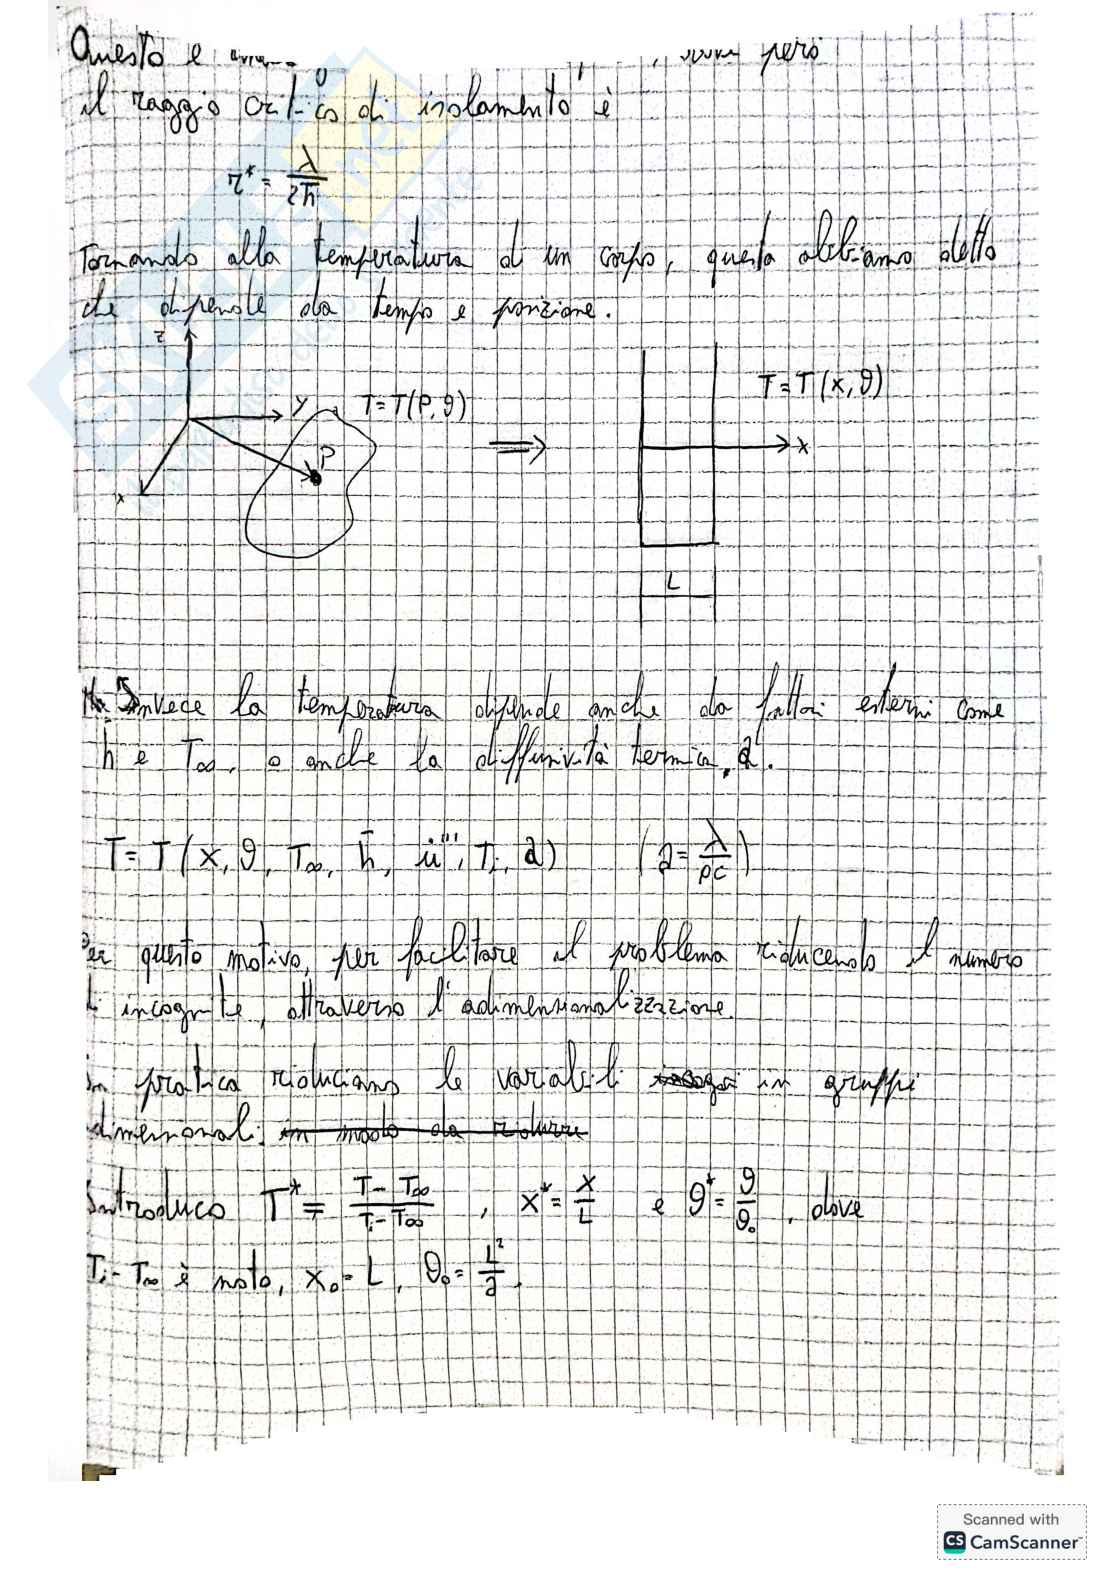 Questo è però
il raggio critico di isolamento è
r* = λ / 2h̄
Tornando alla temperatura di un corpo, questa abbiamo detto
che dipende da tempo e posizione.
z
y
x
P
T=T(P,ϑ)
⇒
T=T(x,ϑ)
x
L
Invece la temperatura dipende anche da fattori esterni come
h̄ e T∞, o anche la diffusività termica, a.
T= T(x, ϑ, T∞, h̄, u̇''', Ti, a) (a= λ/ρc)
Per questo motivo, per facilitare il problema riducendo il numero
di incognite, attraverso l'adimensionalizzazione.
In pratica riduciamo le variabili in gruppi
dimensionali. in modo da ridurre
Introduco T* = (T - T∞)/(Ti - T∞) , x* = x/L e ϑ* = ϑ/ϑ₀ , dove
Ti - T∞ è noto, x₀ = L, θ₀ = L²/a.
Scanned with
CS CamScanner